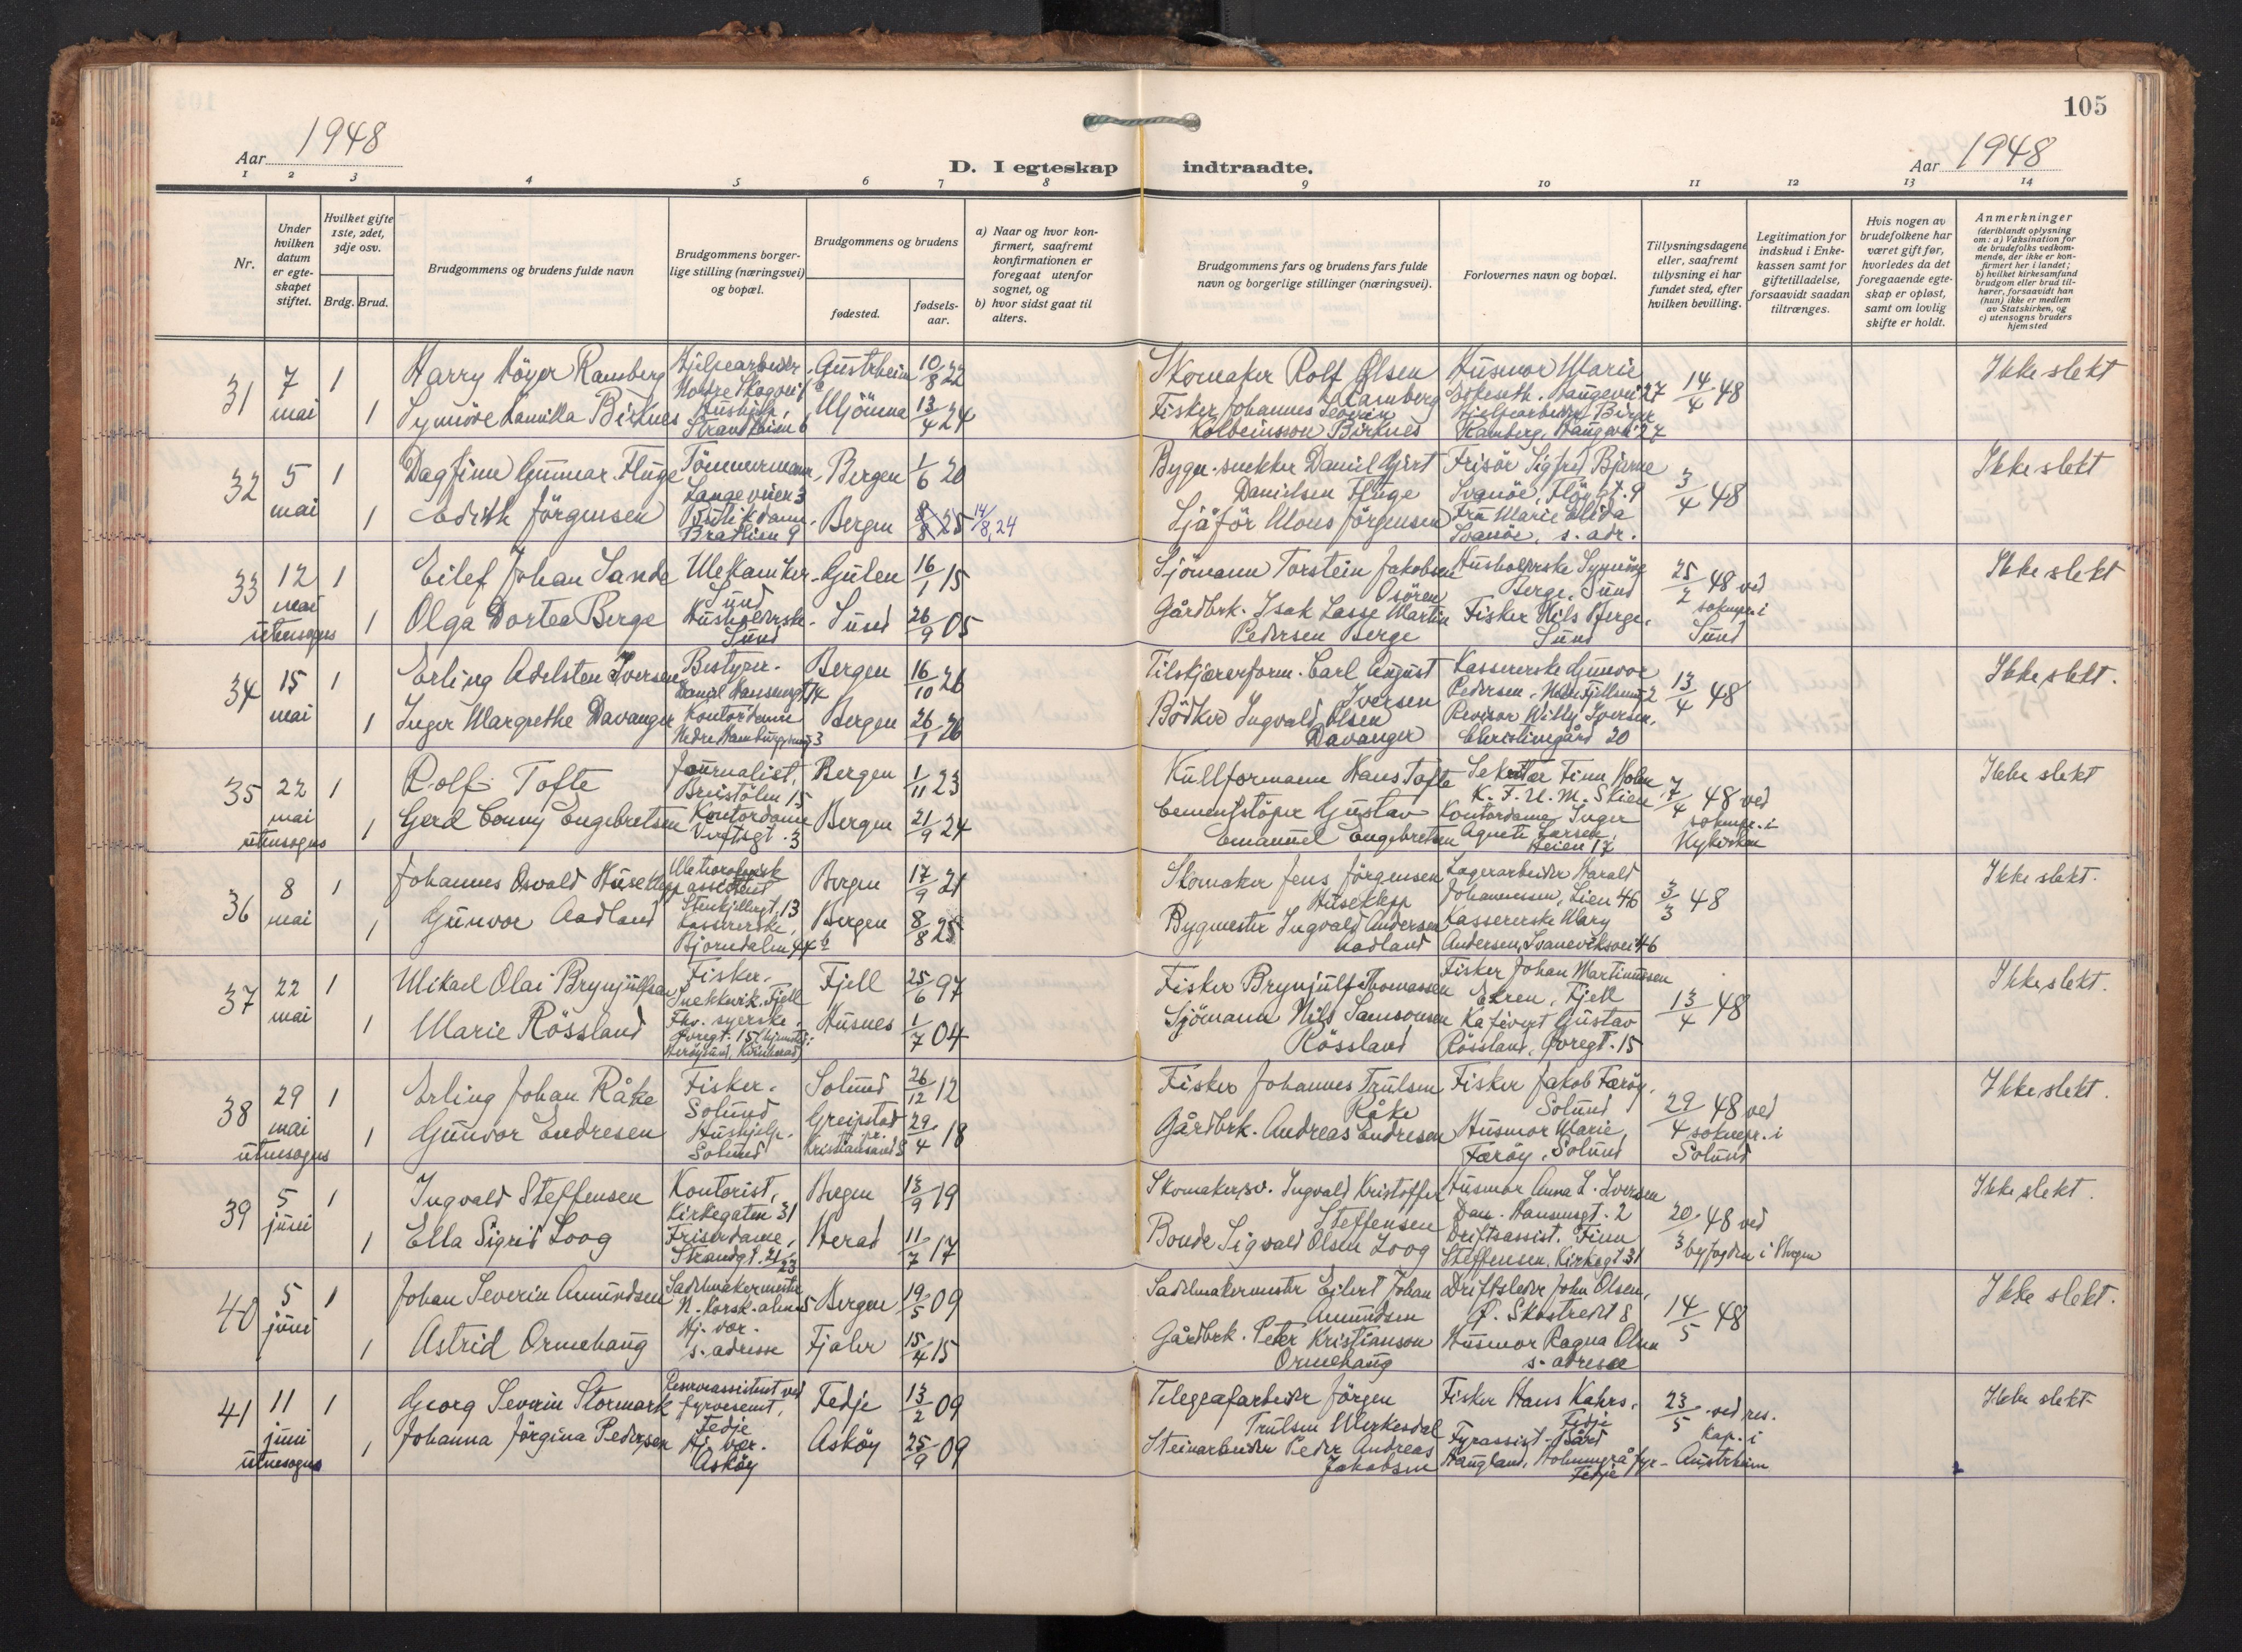 105
Aar 1948
D. I egteskap indtraadte.
Aar 1948
1 2 3 4 5 6 7 8 9 10 11 12 13 14
Nr.
Under hvilken datum er egteskapet stiftet.
Hvilket gifte 1ste, 2det, 3dje osv.
Brdg. Brud.
Brudgommens og brudens fulde navn
Brudgommens borgerlige stilling (næringsvei) og bopæl.
Brudgommens og brudens
fødested.
fødselsaar.
a) Naar og hvor konfirmert, saafremt konfirmationen er foregaat utenfor sognet, og
b) hvor sidst gaat til alters.
Brudgommens fars og brudens fars fulde navn og borgerlige stillinger (næringsvei).
Forlovernes navn og bopæl.
Tillysningsdagene eller, saafremt tillysning ei har fundet sted, efter hvilken bevilling.
Legitimation for indskud i Enkekassen samt for giftetilladelse, forsaavidt saadan tiltrænges.
Hvis nogen av brudefolkene har været gift før, hvorledes da det foregaaende egteskap er opløst, samt om lovlig skifte er holdt.
Anmerkninger (deriblandt oplysning om: a) Vaksination for de brudefolks vedkommende, der ikke er konfirmert her i landet; b) hvilket kirkesamfund brudgom eller brud tilhører, forsaavidt han (hun) ikke er medlem av Statskirken, og c) utensogns bruders hjemsted
31 7 mai 1 Harry Höyer Ramberg Hjelpearbeider, Austrheim 10/8 22 Skomaker Rolf Olsen Ramberg Husmor Marie 14/4 48 Ikke slekt
1 Synnöve Kamilla Birknes Hushjelp, Mjömna 13/4 24 Fisker Johannes Severin Kolbeinsson Birknes Hjelpearbeider Birger Ramberg, Haugevei 27
32 5 mai 1 Dagfinn Gunnar Fluge Tömmermann, Bergen 1/6 20 Daniel Gjert Danielsen Fluge Frisör Sigfred Bjarne Svanöe, 3/4 48 Ikke slekt
1 Edith Jörgensen Butikdame, Bergen 8/8 25 14/8 24 Sjåför Mons Jörgensen Fru Marie Elida Svanöe, s. adr.
33 12 mai utensogns 1 Eilef Johan Sande Mekaniker Sund Gulen 16/1 15 Sjömann Torstein Jakobsen Osören Husholderske Synnöve Berge, Sund 25/2 48 ved soknepr. i Sund Ikke slekt
1 Olga Dortea Berge Husholderske Sund Sund 26/9 05 Gårdbrk. Isak Lasse Martin Pedersen Berge Fisker Nils Berge, Sund
34 15 mai 1 Erling Adelsten Iversen Bestyrer. Daniel Hansensgt 14 Bergen 16/10 26 Tilskjærerform. Carl August Iversen Kassererske Gunvor Pedersen, 13/4 48 Ikke slekt.
1 Inger Margrethe Davanger Kontordame Nedre Hamburgersmug 3 Bergen 26/1 26 Bödker Ingvald Olsen Davanger Revisor Willy Iversen, Christinegård 20
35 22 mai utensogns 1 Rolf Tofte Journalist, Breistölen 15 Bergen 1/11 23 Kullformann Hans Tofte Sekretær Finn Holm K.F.U.M. Skien 7/4 48 ved soknepr. i Nykirken Ikke slekt
1 Gerd Conny Engebretsen Kontordame Verftsgt. 3 Bergen 21/9 24 Cementstöper Gustav Emanuel Engebretsen Kontordame Inger Agnete Larsen, Heien 17
36 8 mai 1 Johannes Osvald Huseklepp Meteorologisk assistent Stenkjellergt. 13 Bergen 17/9 21 Skomaker Jens Jörgensen Huseklepp Lagerarbeider Harald Johannessen, Lien 46 3/3 48 Ikke slekt.
1 Gunvor Aadland Kassererske, Björndalen 44 b Bergen 8/8 25 Bygmester Ingvald Andersen Aadland Kassererske Mary Andersen, Svaneviksvei 46
37 22 mai 1 Mikael Olai Brynjulfsen Fisker. Snekkevik, Fjell Fjell 25/6 97 Fisker Brynjulf Thomassen Fisker Johan Martinussen Ekren, Fjell 13/4 48 Ikke slekt.
1 Marie Rössland Fhv. syerske, Övregt. 15 Husnes 1/7 04 Sjömann Nils Samsonsen Rössland Kafévert Gustav Rössland, Övregt. 15
38 29 mai utensogns 1 Erling Johan Råke Fisker. Solund Solund 26/12 12 Fisker Johannes Trulsen Råke Fisker Jakob Færöy, Solund 29/4 48 ved soknepr. i Solund Ikke slekt.
1 Gunvor Endresen Hushjelp. Solund Greipstad pr. Kristiansand S 29/4 18 Gårdbrk. Andreas Endresen Husmor Marie Færöy, Solund
39 5 juni 1 Ingvald Steffensen Kontorist, Kirkegaten 31 Bergen 13/9 19 Skomakersv. Ingvald Kristoffer Steffensen Husmor Anna L. Iversen Dan. Hansensgt. 2 20/3 48 ved byfogden i Bergen Ikke slekt.
1 Ella Sigrid Loog Friserdame, Strandgt. 21/23 Herad 11/7 17 Bonde Sigvald Olsen Loog Driftsassist. Finn Steffensen, Kirkegt 31
40 5 juni 1 Johan Severin Amundsen Sadelmakermester N. Korsk.alm. 5 Bergen 19/5 09 Sadelmakermester Eilert Johan Amundsen Driftsleder John Olsen, Ö. Skostredet 8 14/5 48 Ikke slekt.
1 Astrid Ormehaug Hj. vær. s. adresse Fjaler 15/4 15 Gårdbrk. Peter Kristianson Ormehaug Husmor Ragna Olsen s. adresse
41 11 juni utensogns 1 Georg Severin Stormark Reserveassistent ved fyrvesenet, Fedje Fedje 13/2 09 Telegrafarbeider Jörgen Trulsen Fisker Hans Kahrs, Fedje 23/5 ved res. kap. i Austrheim Ikke slekt
1 Johanna Jörgina Pedersen Hj. vær. Asköy Asköy 25/9 09 Steinarbeider Peder Andreas Jakobsen Fyrassist. Bård Haugland, Holmengrå fyr Fedje